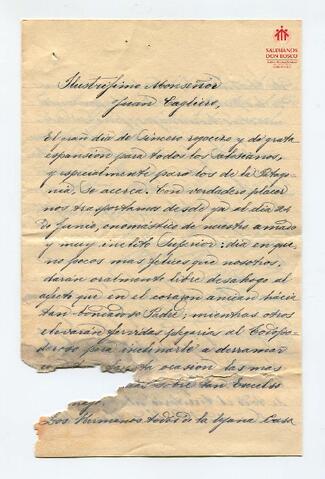 SALESIANOS
DON BOSCO
Ilustrísimo Monseñor
Juan Cagliero,
El gran día de sincero regocijo y de grata
expansión para todos los Salesianos,
y especialmente para los de la Patago-
nia, se acerca. Con verdadero placer
nos trasportamos desde ya al día 24
de Junio, onomástico de nuestro amado
y muy ínclito Superior: día en que
no pocos mas felices que nosotros,
darán oralmente libre desahogo al
afecto que en el corazon anidan hácia
tan bondadoso Padre; mientras otros
elevarán fervidas plegarias al Todopo-
deroso para inclinarle a derramar
ocasión las mas
sobre tan Excelso
Los Hermanos todos de la Casa